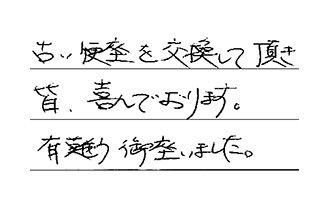 古い便座を交換して頂き
皆、喜んでおります。
有難う御座いました。